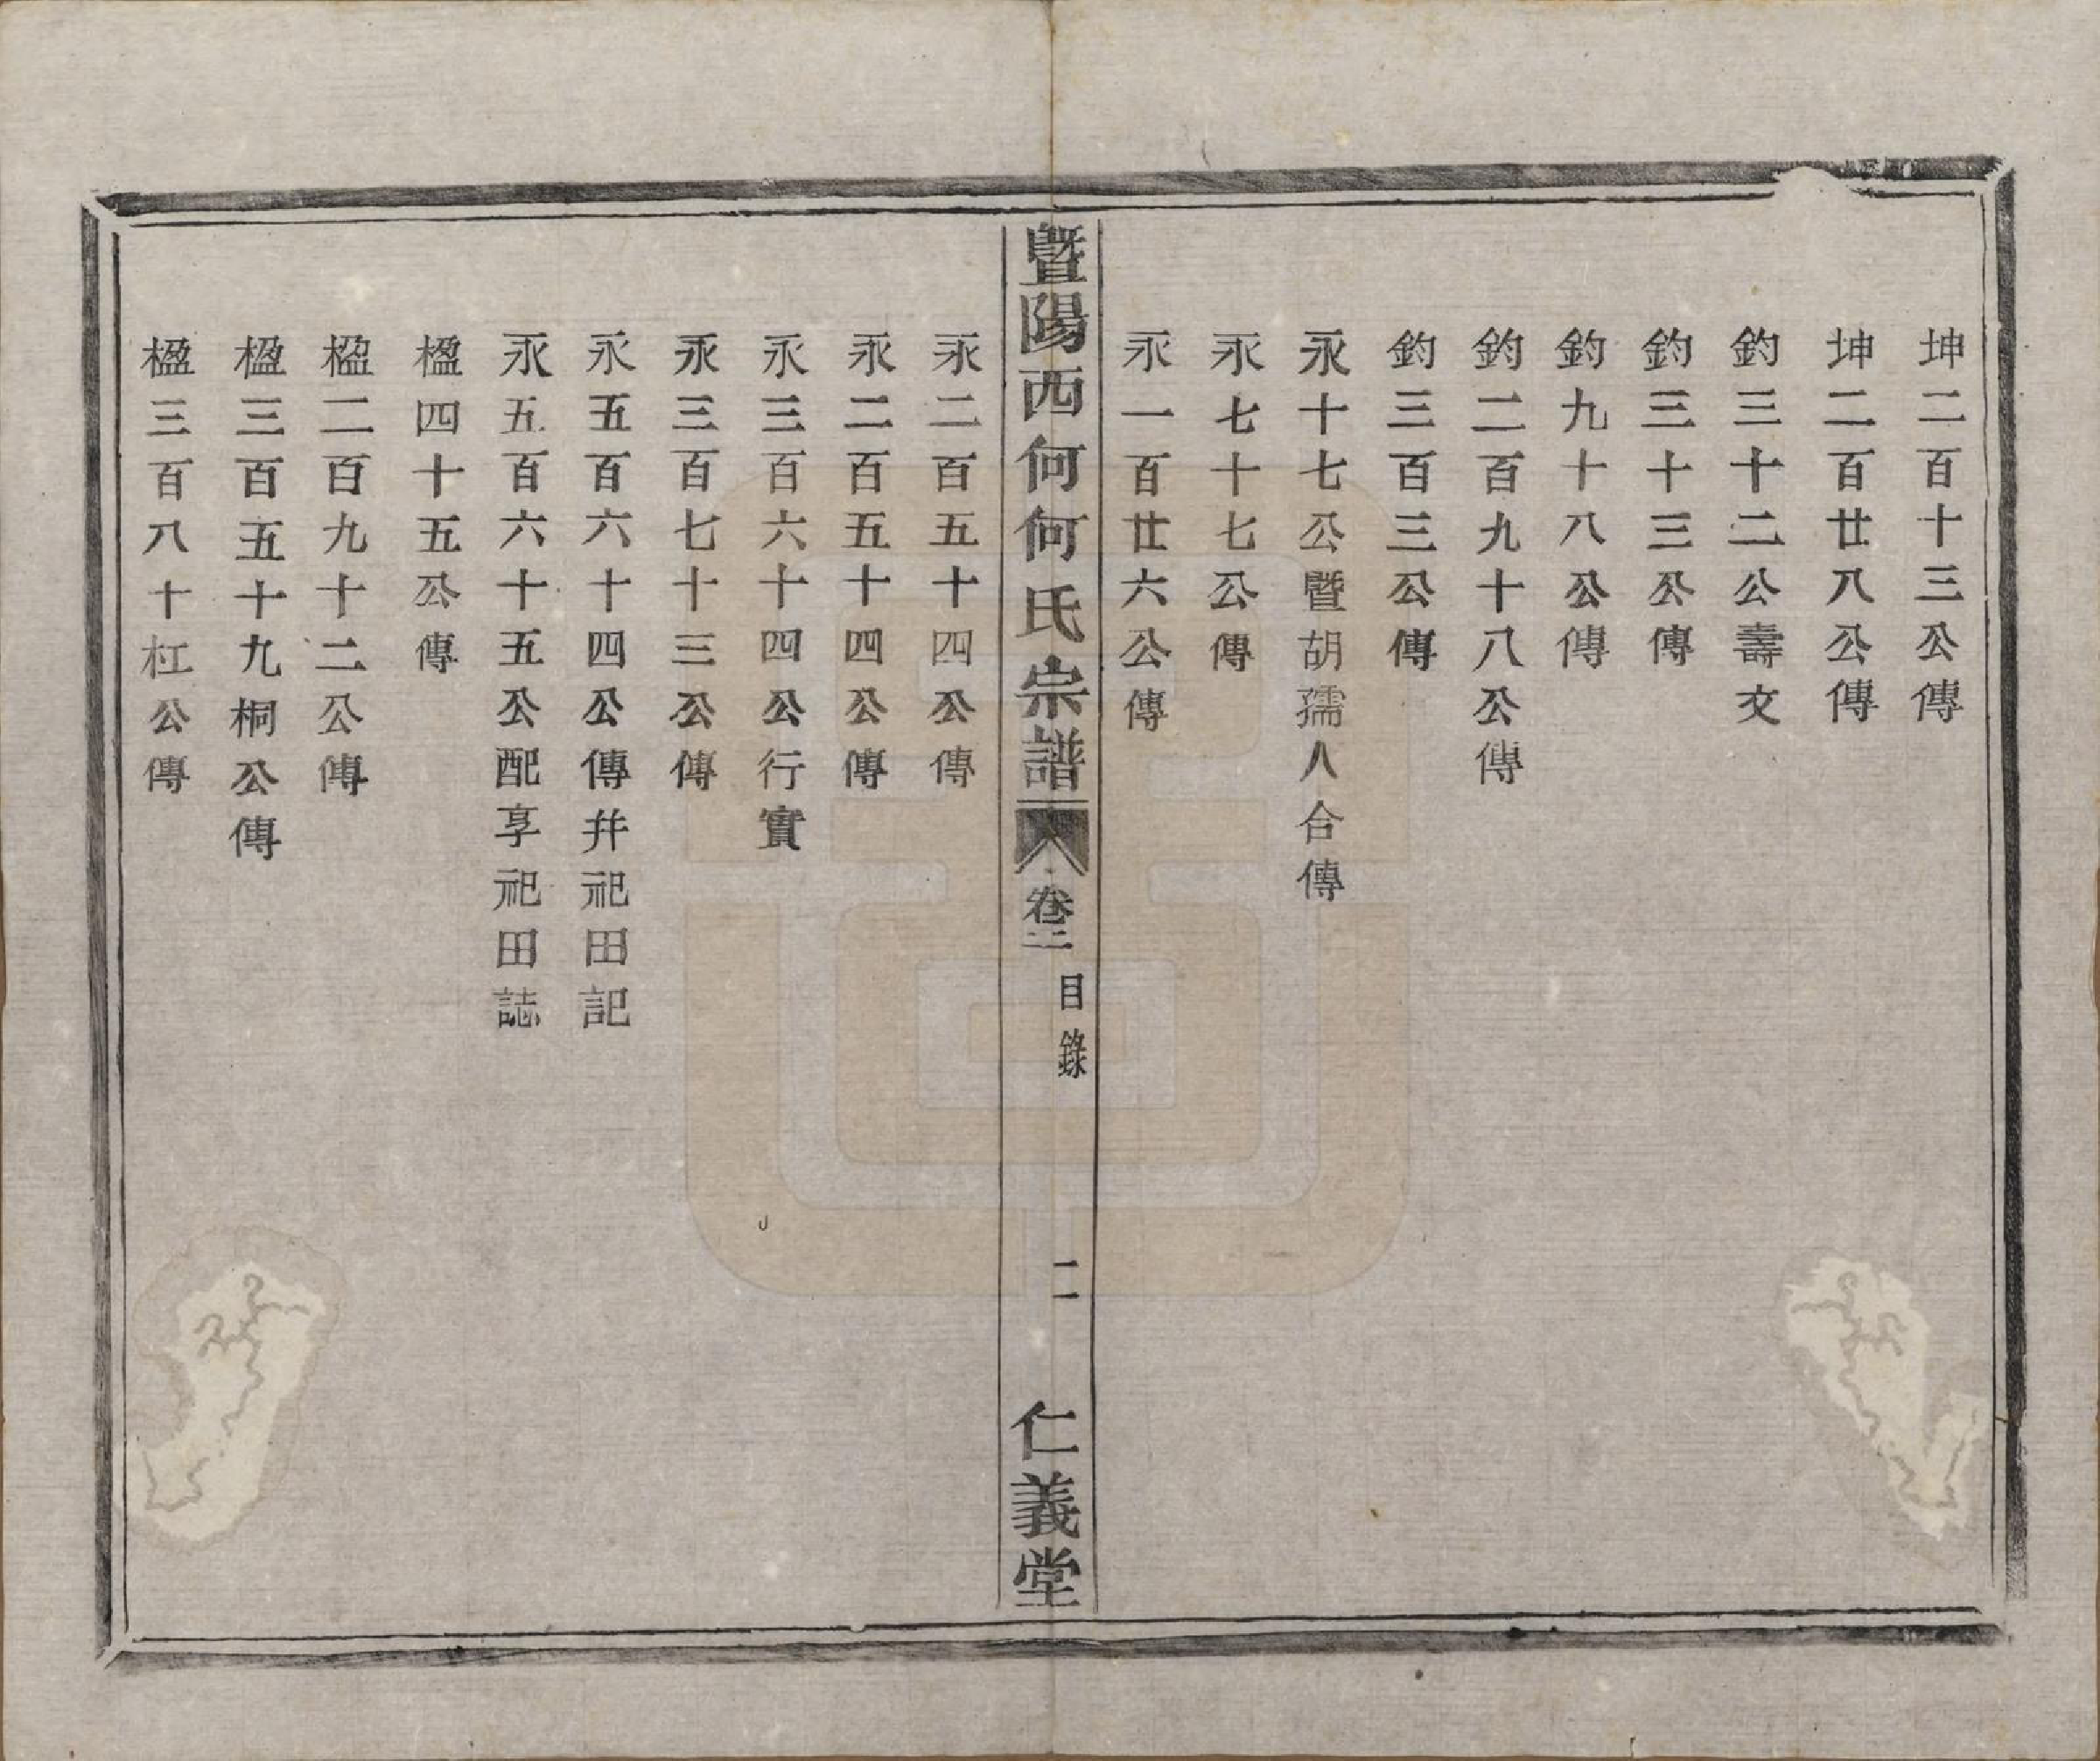 坤二百十三公傳
坤二百廿八公傳
釣三十二公壽文
釣三十三公傳
釣九十八公傳
釣二百九十八公傳
釣三百三公傳
永十七公暨胡孺人合傳
永七十七公傳
永一百廿六公傳
暨陽西何何氏宗譜
卷二
目錄
二
仁義堂
永二百五十四公傳
永二百五十四公傳
永三百六十四公行實
永三百七十三公傳
永五百六十四公傳并祀田記
永五百六十五公配享祀田誌
楹四十五公傳
楹二百九十二公傳
楹三百五十九桐公傳
楹三百八十杠公傳